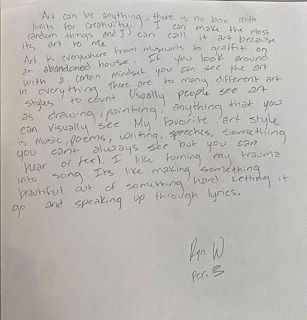 Art can be anything, there is no box with
limits for creativity. I can make the most
random things and I can call it art because
its art to me
Art is everywhere from museums to graffiti on
an abandoned house. If you look around
with a certain mindset you can see the art
in everything. There are to many different art
styles to count. Usually people see art
as drawing, painting, anything that you
can visually see. My favorite art style
is music, poems, writing, speeches, something
you cant always see but you can
hear or feel. I like turning my trauma
into song. Its like making something
beautiful out of something hard. Letting it
go and speaking up through lyrics.
Ryn W
per. 3